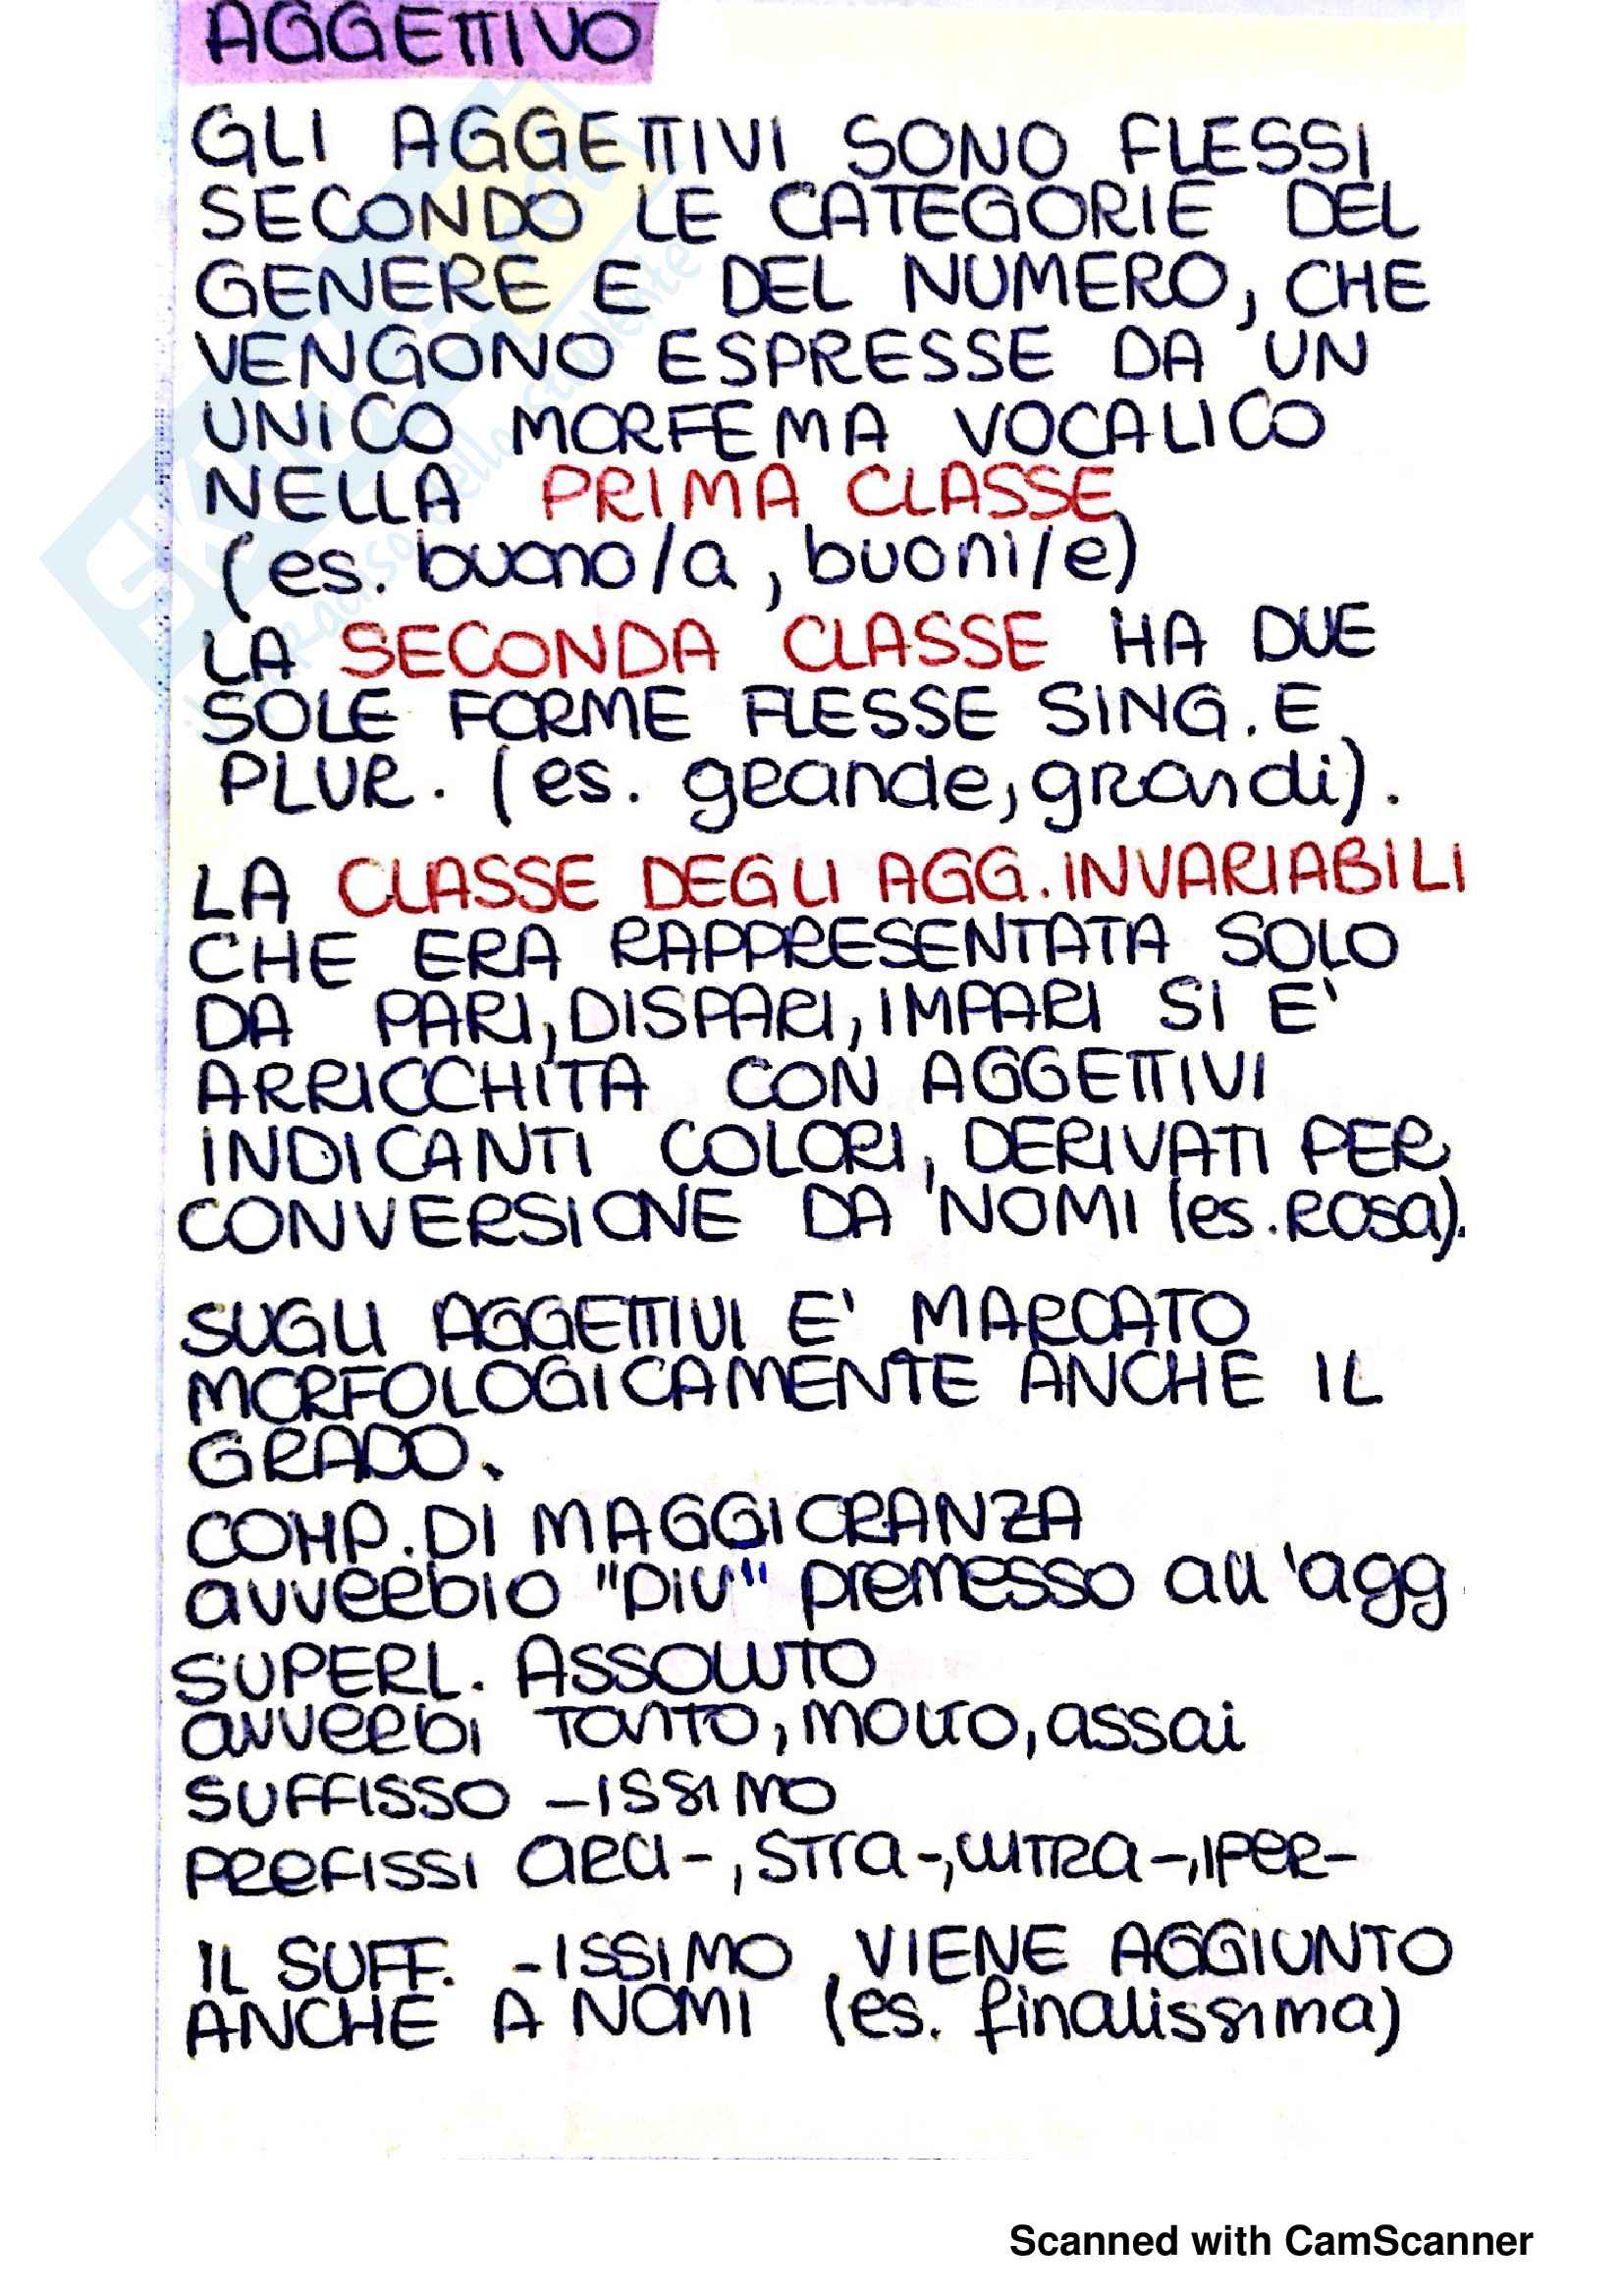 AGGETTIVO
GLI AGGETTIVI SONO FLESSI
SECONDO LE CATEGORIE DEL
GENERE E DEL NUMERO, CHE
VENGONO ESPRESSE DA UN
UNICO MORFEMA VOCALICO
NELLA PRIMA CLASSE
(es. buono/a, buoni/e)
LA SECONDA CLASSE HA DUE
SOLE FORME FLESSE SING. E
PLUR. (es. grande, grandi).
LA CLASSE DEGLI AGG. INVARIABILI
CHE ERA RAPPRESENTATA SOLO
DA PARI, DISPARI, IMPARI SI E'
ARRICCHITA CON AGGETTIVI
INDICANTI COLORI, DERIVATI PER
CONVERSIONE DA NOMI (es. ROSA).
SUGLI AGGETTIVI E' MARCATO
MORFOLOGICAMENTE ANCHE IL
GRADO.
COMP. DI MAGGIORANZA
avverbio "PIU" premesso all'agg.
SUPERL. ASSOLUTO
avverbi TANTO, MOLTO, assai
SUFFISSO -ISSIMO
PREFISSI ARCI-, STRA-, ULTRA-, IPER-
IL SUFF. -ISSIMO VIENE AGGIUNTO
ANCHE A NOMI (es. finalissima)
Scanned with CamScanner